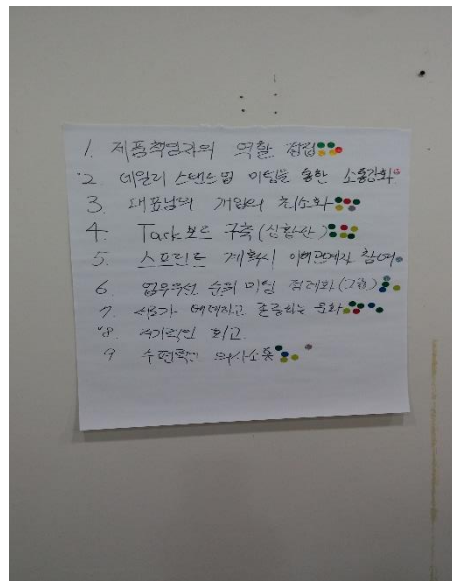 1. 제품책임자의 역할 점검
2. 데일리 스탠드업 미팅을 통한 소통강화
3. 대표님의 개입의 최소화
4. Task보드 구축 (신황산)
5. 스프린트 계획시 이해관계자 참여
6. 업무우선 순위 미팅 정례화 (그룹)
7. 서로가 배려하고 존중하는 문화
8. 회고
9 수평적인 의사소통